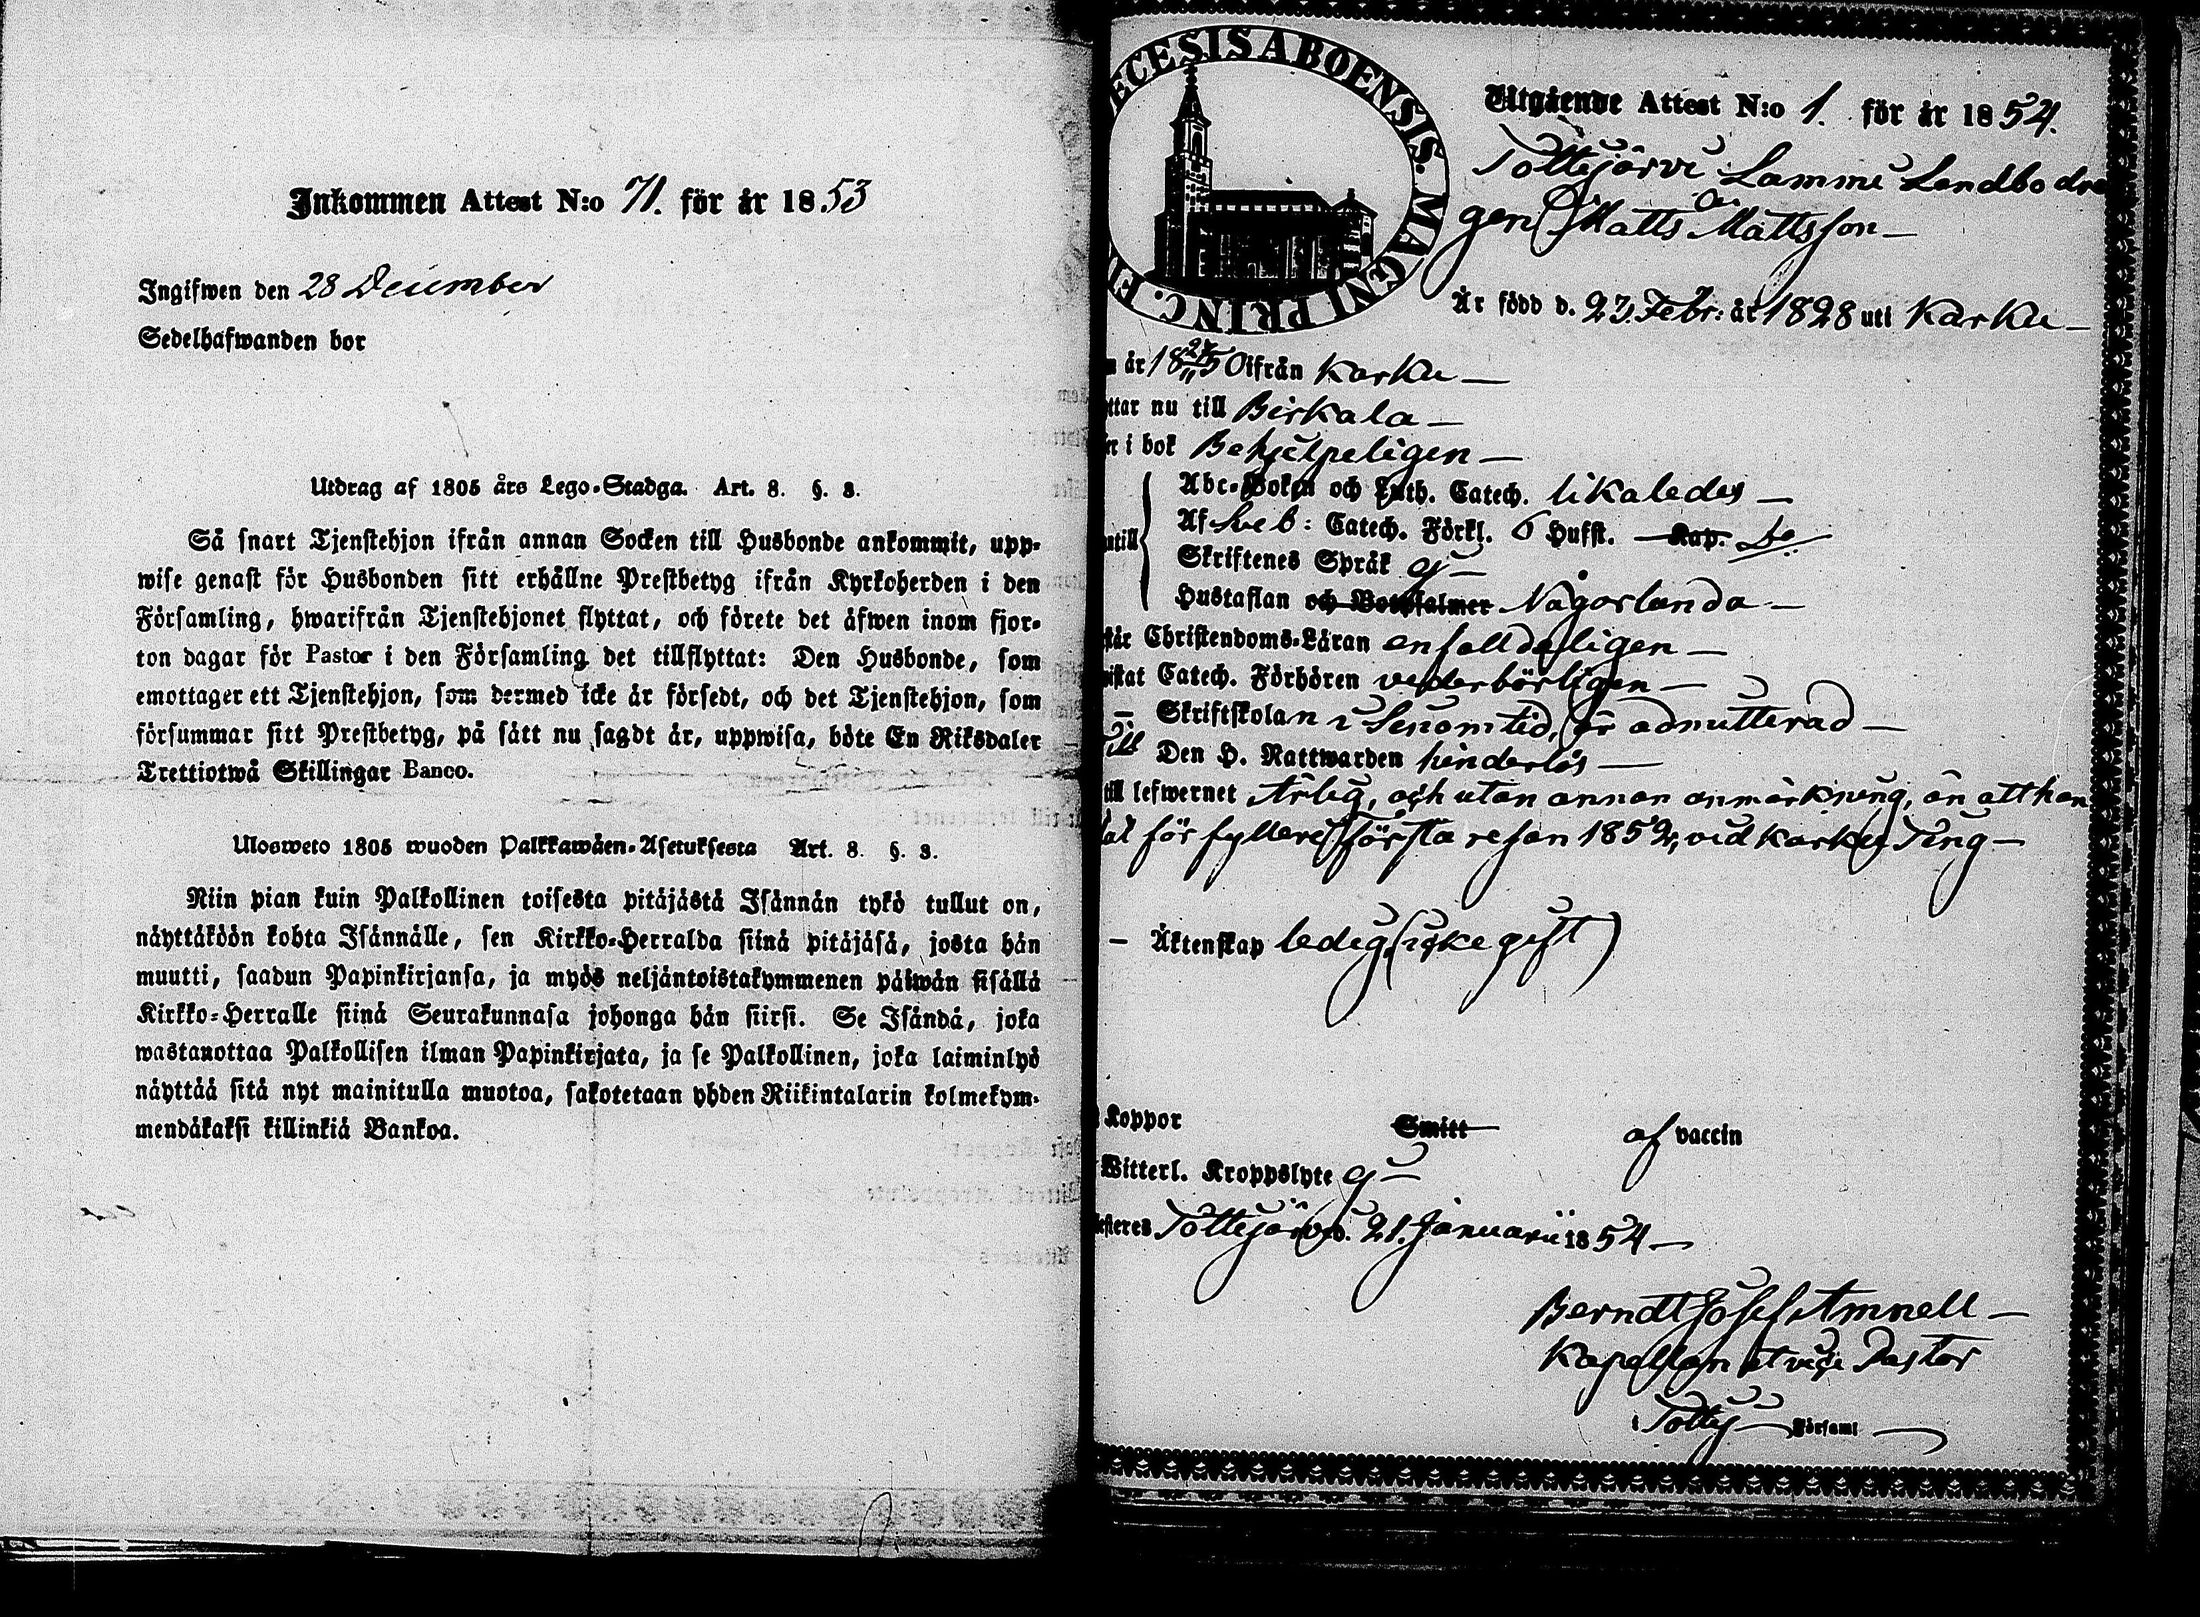 Inkommen Attest N:o 71. för år 1853
Ingifwen den 28 December
Sedelhafwanden bor
Utdrag af 1805 års Lego-Stadga. Art. 8. §. 3.
Så snart Tjenstehjon ifrån annan Socken till Husbonde ankommit, upp-
wise genast för Husbonden sitt erhållne Prestbetyg ifrån Kyrkoherden i den
Församling, hwarifrån Tjenstehjonet flyttat, och förete det äfwen inom fjor-
ton dagar för Pastor i den Församling det tillflyttat: Den Husbonde, som
emottager ett Tjenstehjon, som dermed icke är försedt, och det Tjenstehjon, som
försummar sitt Prestbetyg, på sätt nu sagdt är, uppwisa, böte En Riksdaler
Trettiotwå Skillingar Banco.
Ulosweto 1805 wuoden Palkkawäen-Asetuksesta Art. 8. §. 3.
Niin pian kuin Palkollinen toisesta pitäjästä Isännän tykö tullut on,
näyttäköön kohta Isännälle, sen Kirkko-Herralda siinä pitäjäsä, josta hän
muutti, saadun Papinkirjansa, ja myös neljäntoistakymmenen päiwän sisällä
Kirkko-Herralle siinä Seurakunnasa johonga hän siirsi. Se Isändä, joka
wastanottaa Palkollisen ilman Papinkirjata, ja se Palkollinen, joka laiminlyö
näyttää sitä nyt mainitulla muotoa, sakotetaan yhden Riikintalarin kolmekym-
mendäkaksi killinkiä Bankoa.
ECESIS ABOENSIS. MAGNI PRINC. FI
Utgående Attest N:o 1. för år 1854.
Tottijärvi Lammi Landbo dre
gen Matts Mattsson
Är född d. 23. Febr: år 1828 uti Karku
år 1850 ifrån Karku
ttar nu till Birkala
r i bok Behjelpeligen
Abc-Boken och Luth. Catech. likaledes
Af Sveb: Catech. Förkl. 6 Hufst. Kap. Do
antill Skriftenes Språk ej
Hustaflan och Botpsalmer Någorlunda
står Christendoms-Läran enfalldeligen
istat Catech. Förhören vederbörligen
Skriftskolan i Senom tid, är admitterad
Den H. Nattwarden hinderlös
till lefwernet Ärlig, och utan annan anmärkning, än att han
at för fylleri första resan 1852, vid Karku Ting
Äktenskap ledig (icke gift)
Koppor Smitt af vaccin
Witterl. Kroppslyte ej
esteres Tottijärvi d. 21. Januarii 1854
Berndt Josef Amnell
Kapellan et vice Pastor
i Tottij Församl